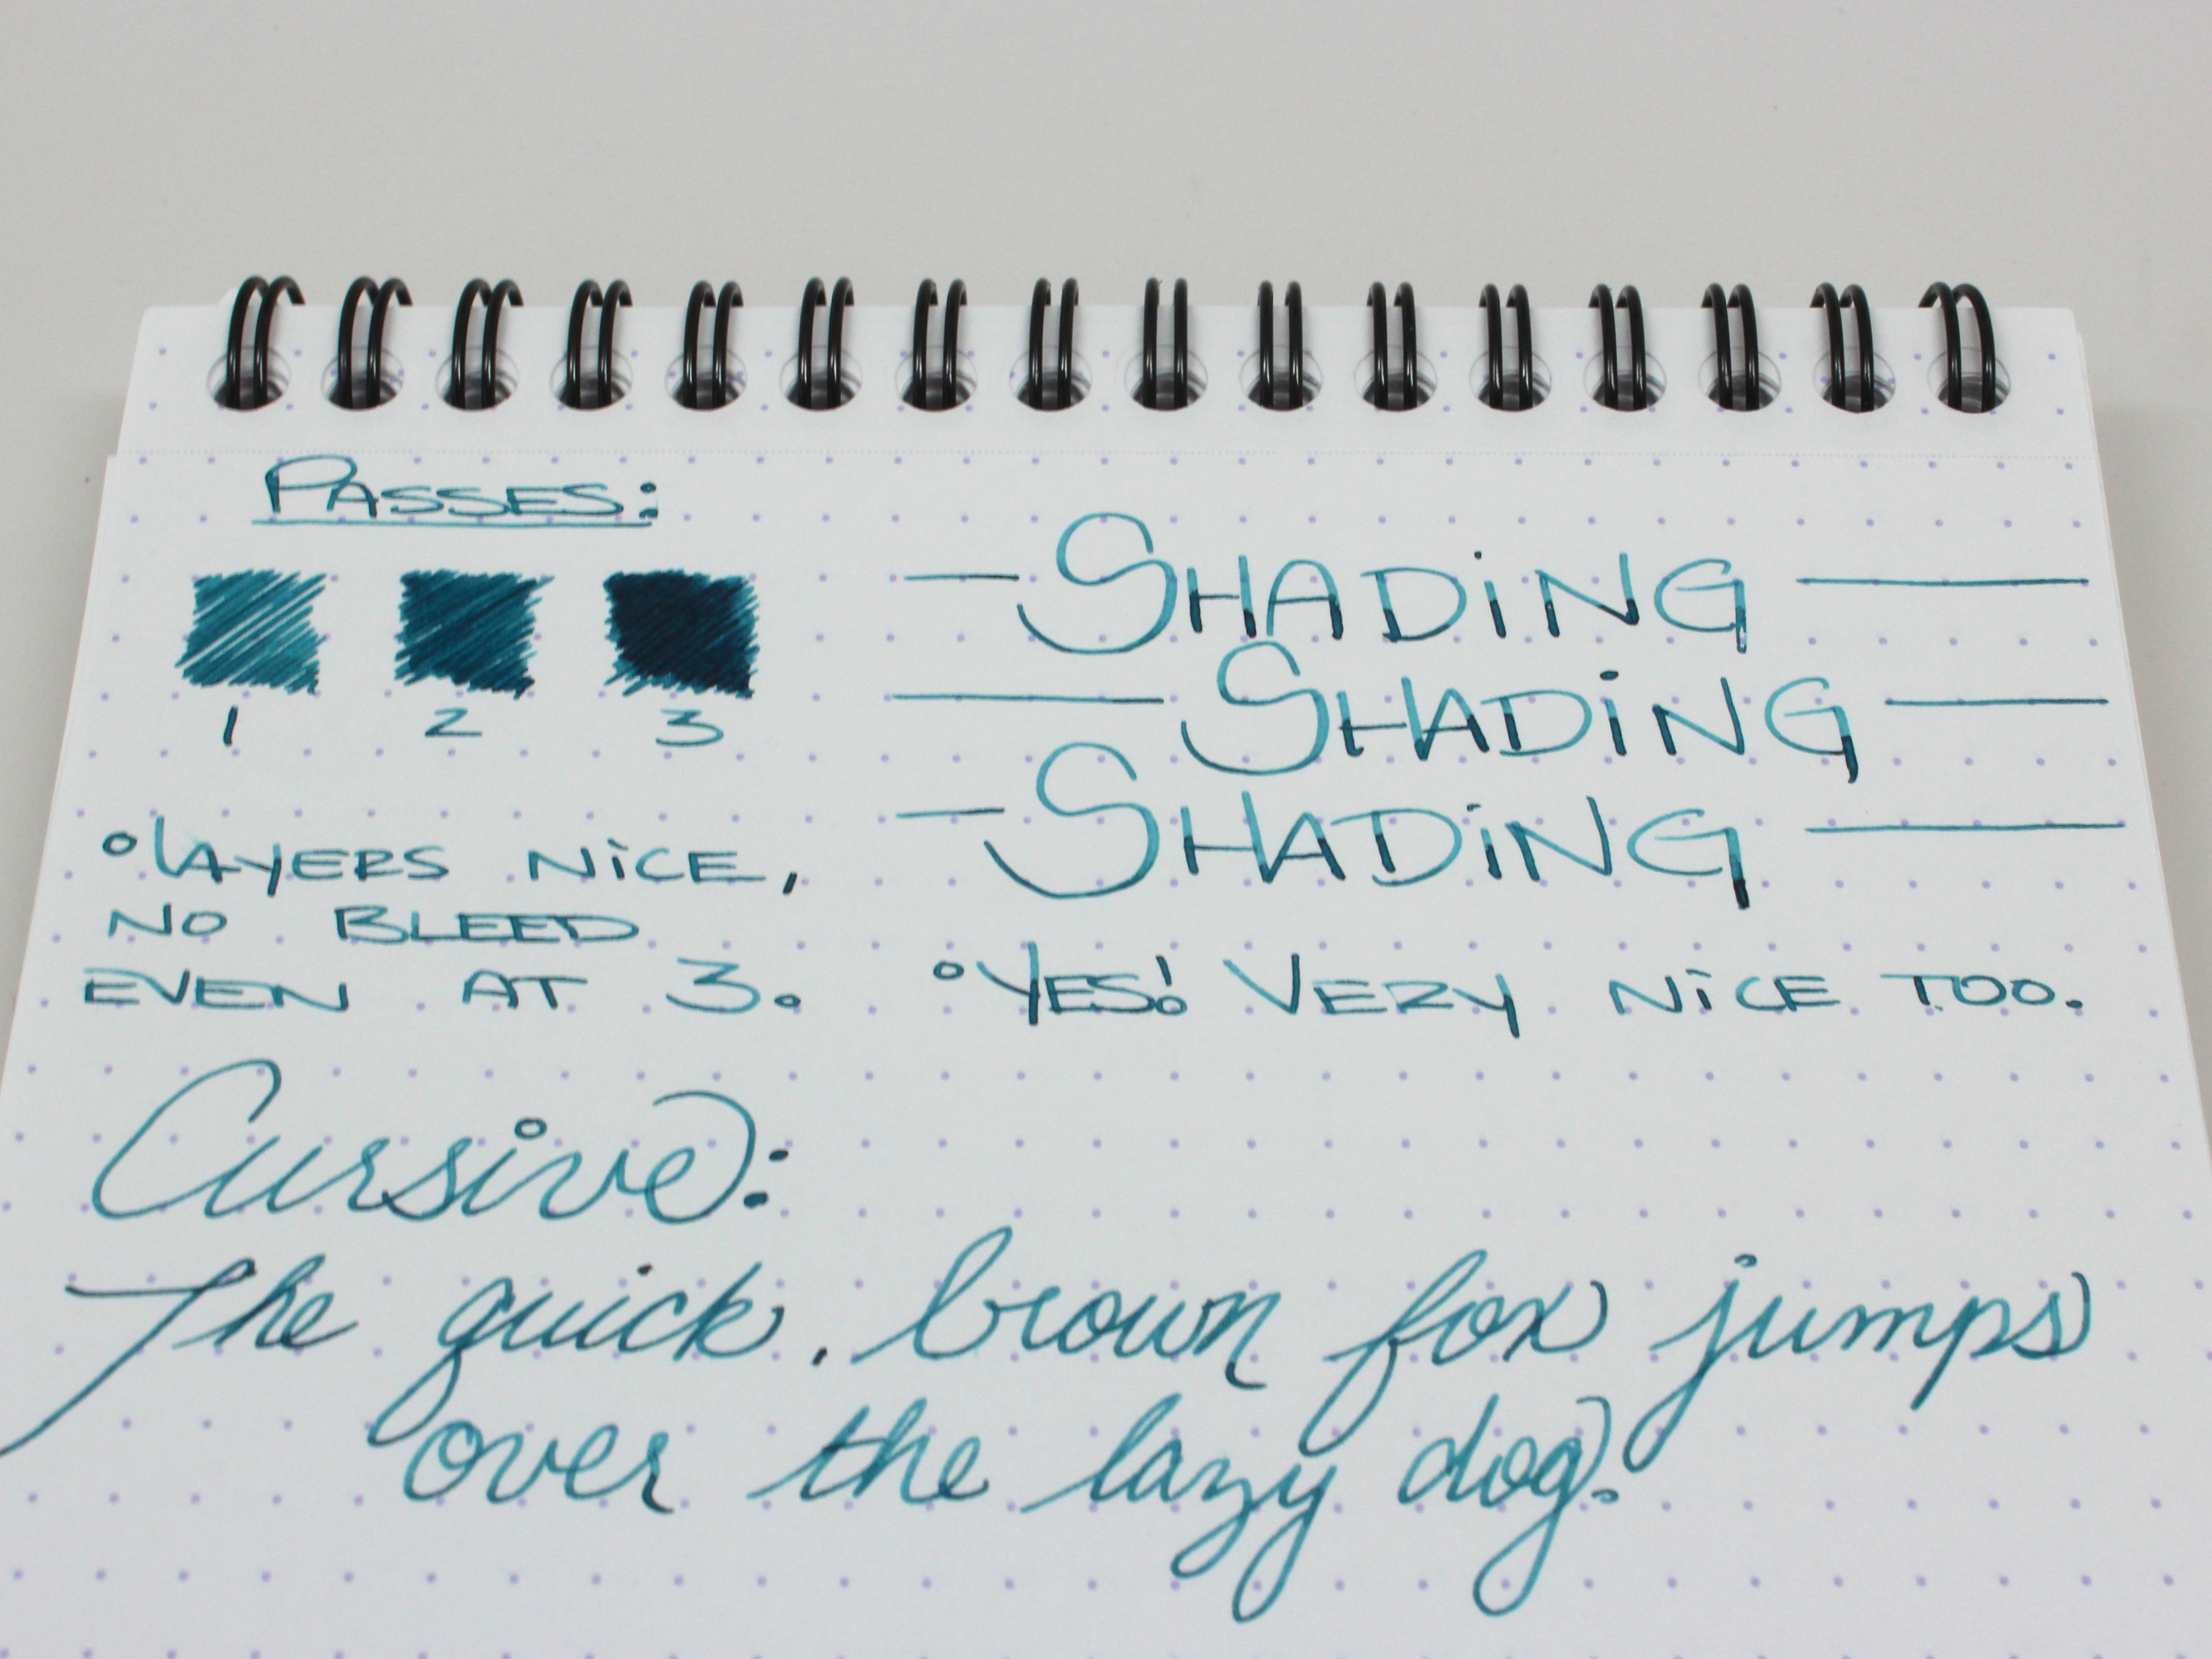 PASSES:
1 2 3
LAYERS NiCE,
NO BLEED
EVEN AT 3.
SHADiNG
SHADiNG
SHADiNG
YES! VERY NiCE TOO.
Cursive:
The quick, brown fox jumps
over the lazy dog.